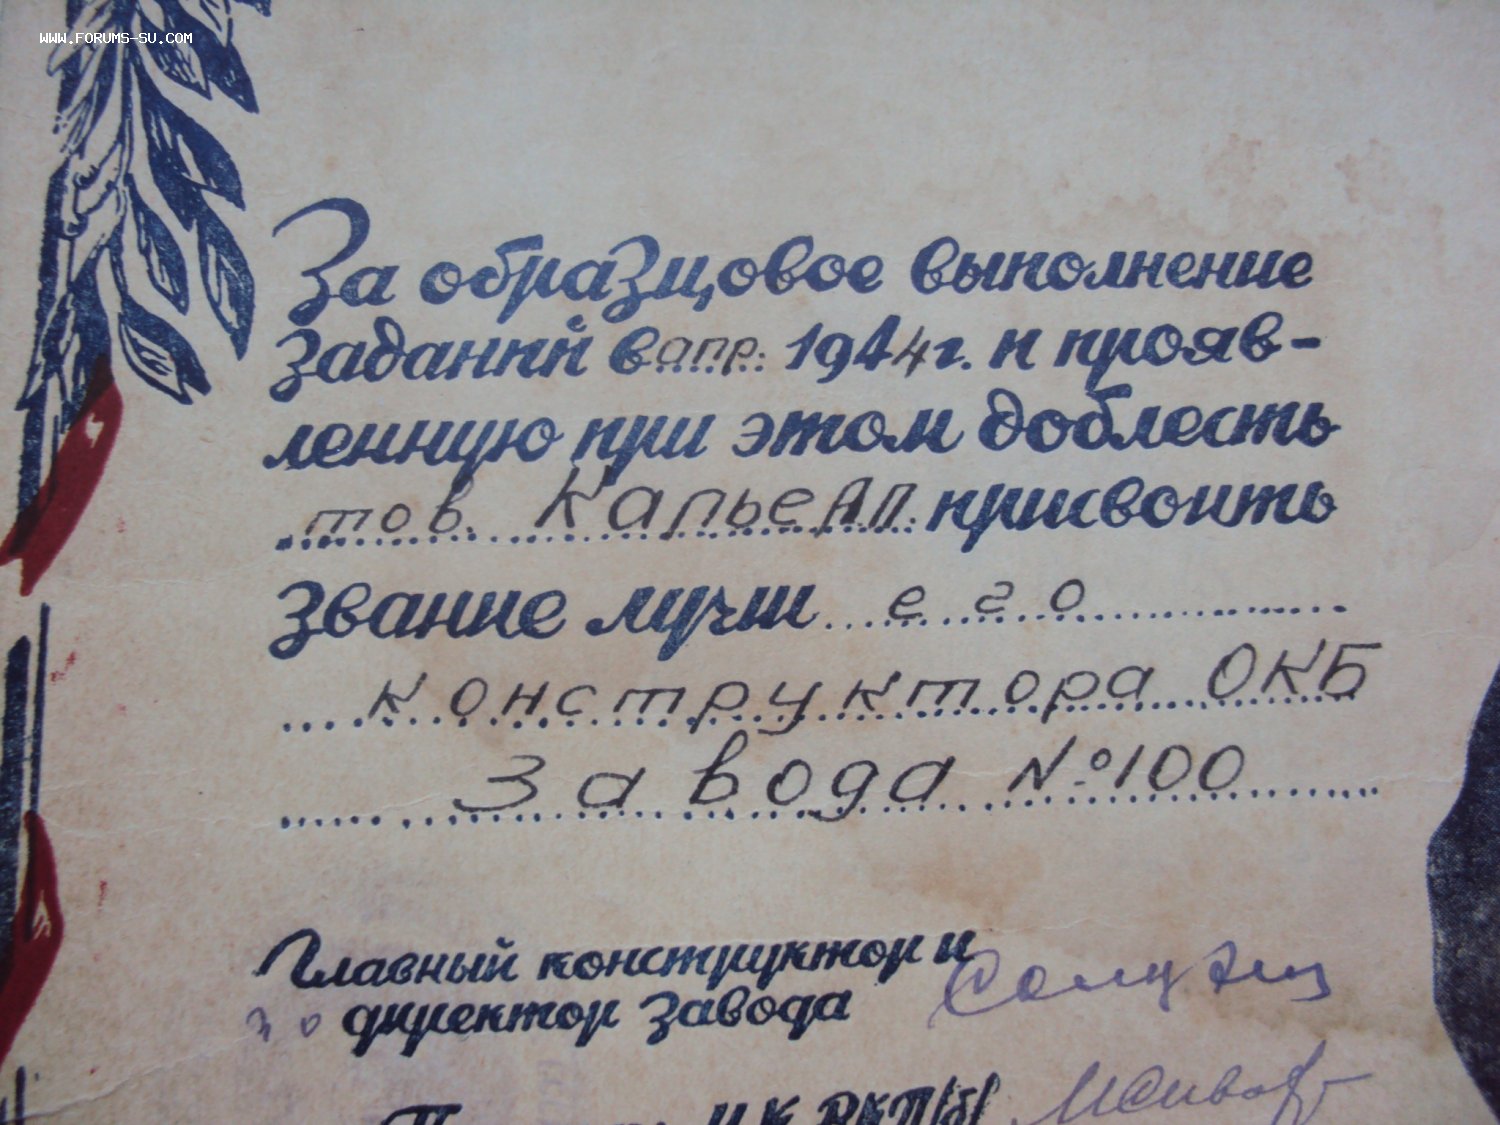 WWW.FORUMS-SU.COM
За образцовое выполнение
заданий в апр. 1944 г. и прояв-
ленную при этом доблесть
тов. Капье А.П. присвоить
звание лучш его
конструктора ОКБ
завода № 100
Главный конструктор и
директор завода
ЦК ВКП(б)